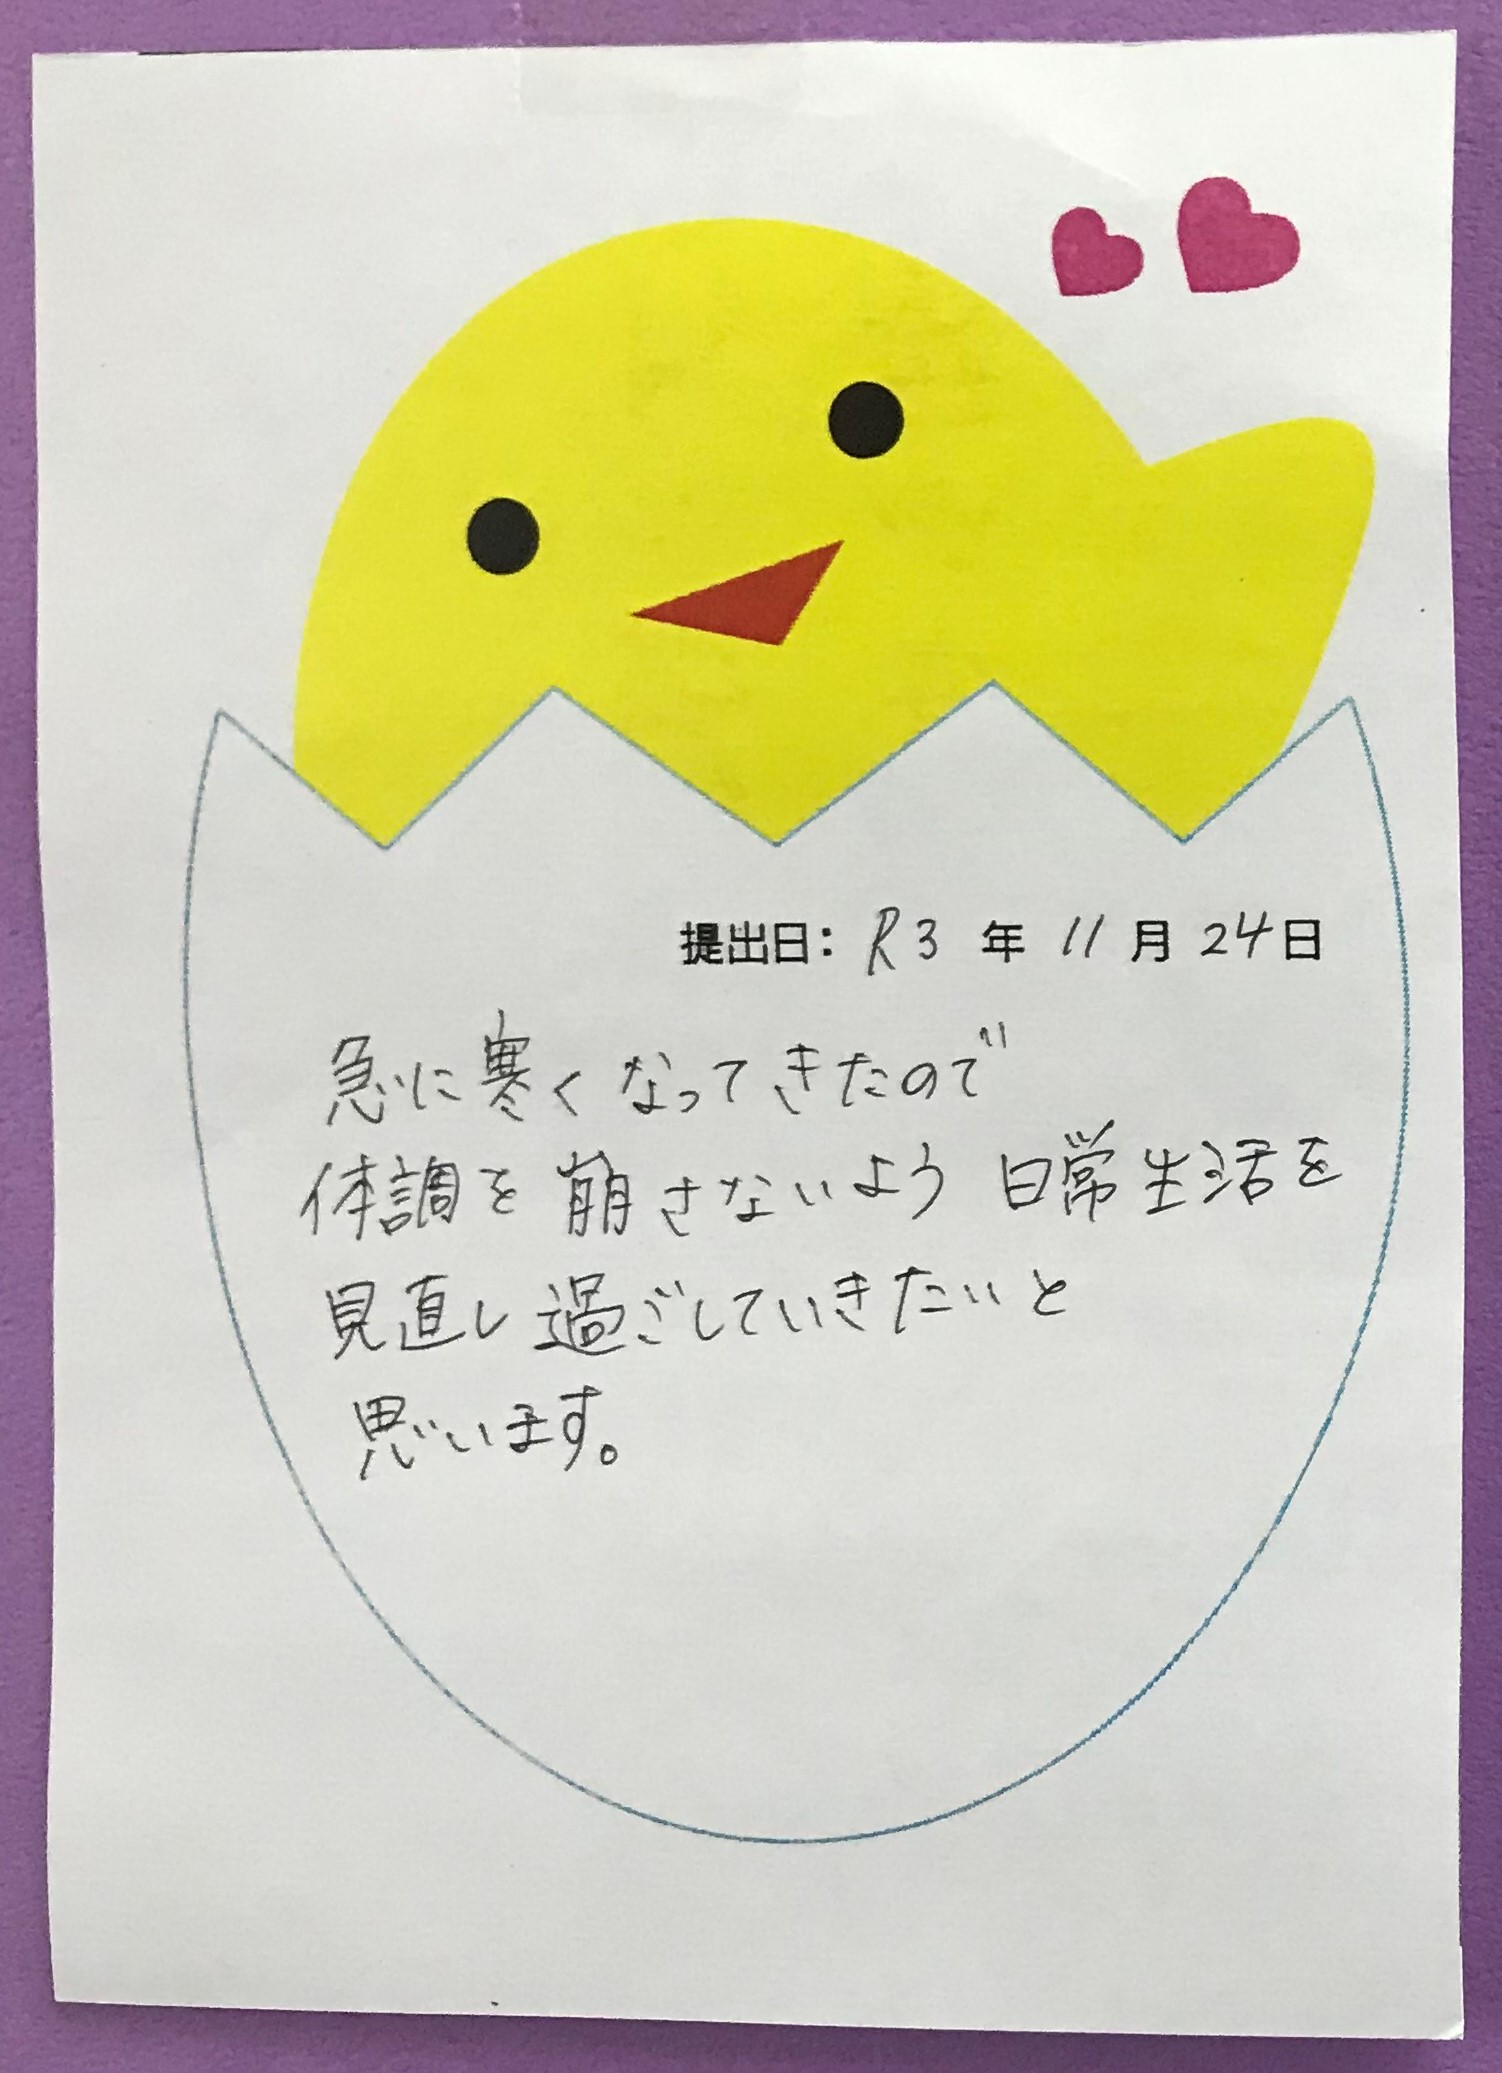 提出日: R3 年 11 月 24日
急に寒くなってきたので
体調を崩さないよう 日常生活を
見直し過ごしていきたいと
思います。